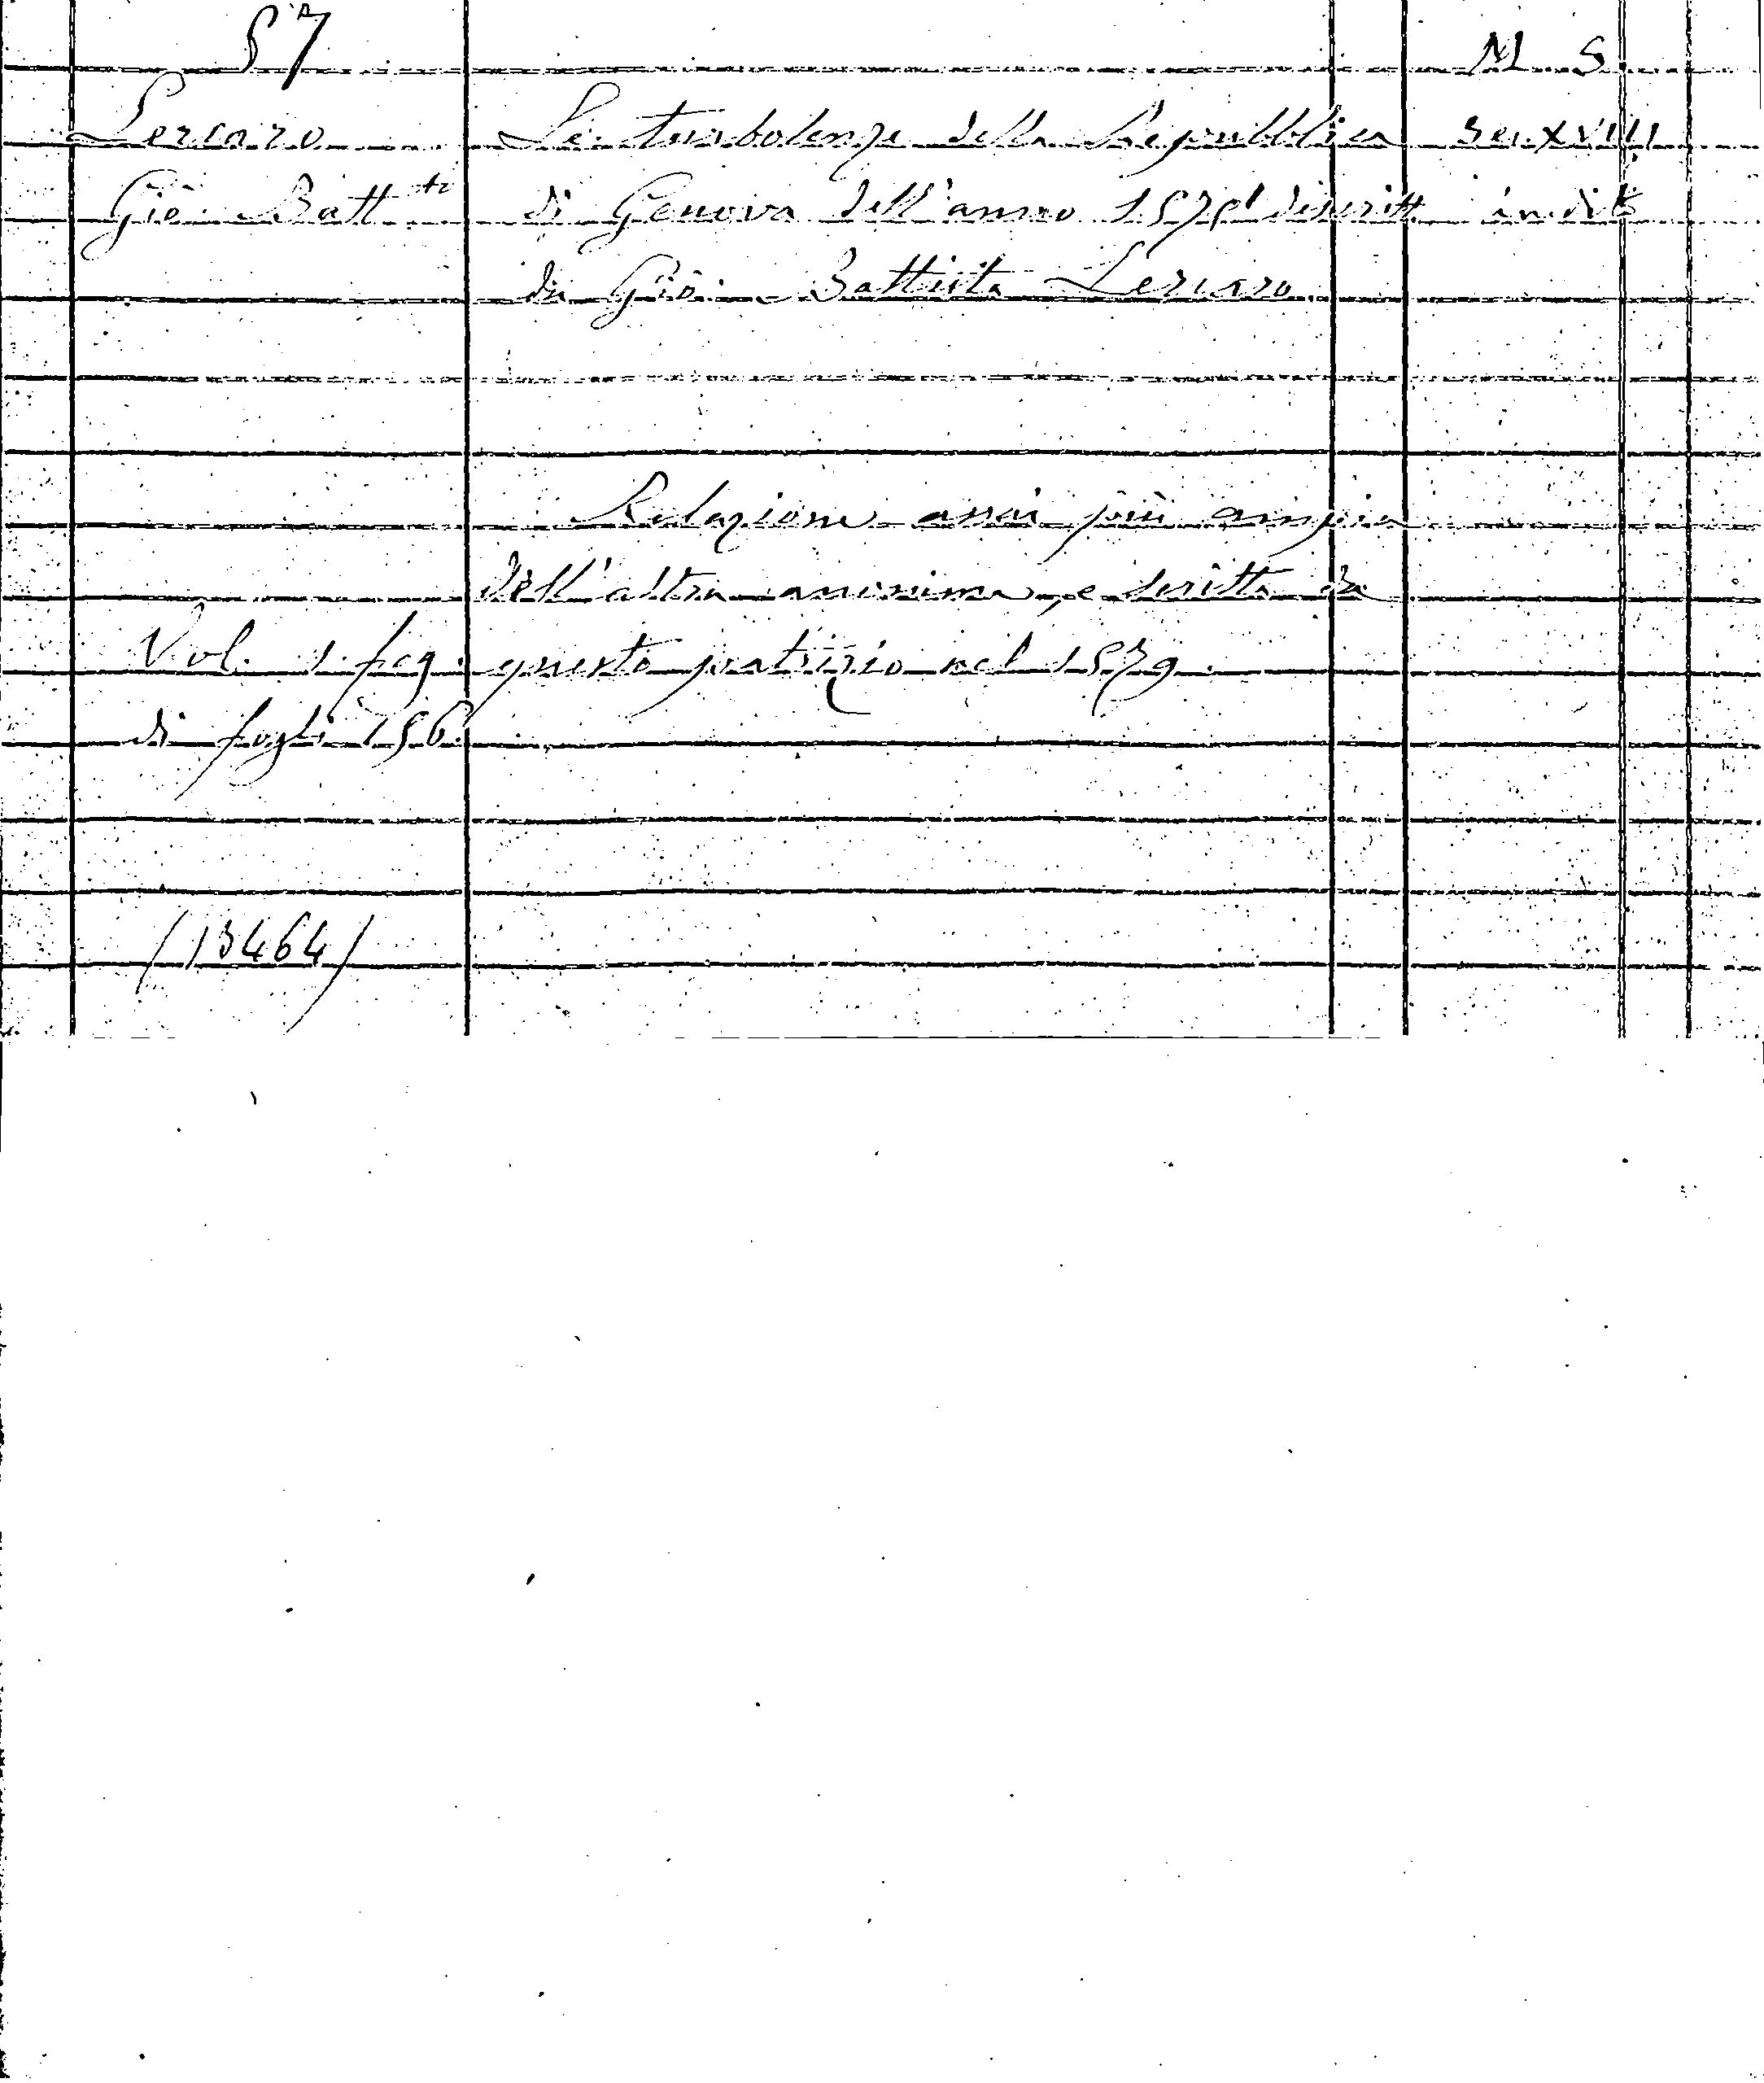 57
M. S.
Lercaro Le turbolenze della Repubblica Sec. XVIII
Gio. Batt.ta di Genova dell'anno descritte inedito
da Gio. Battista Lercaro
Relazione assai più ampia
dell'altra anonima, e scritta da
Vol. 1. questo patrizio nel 1579.
di fogli 156.
(13464)